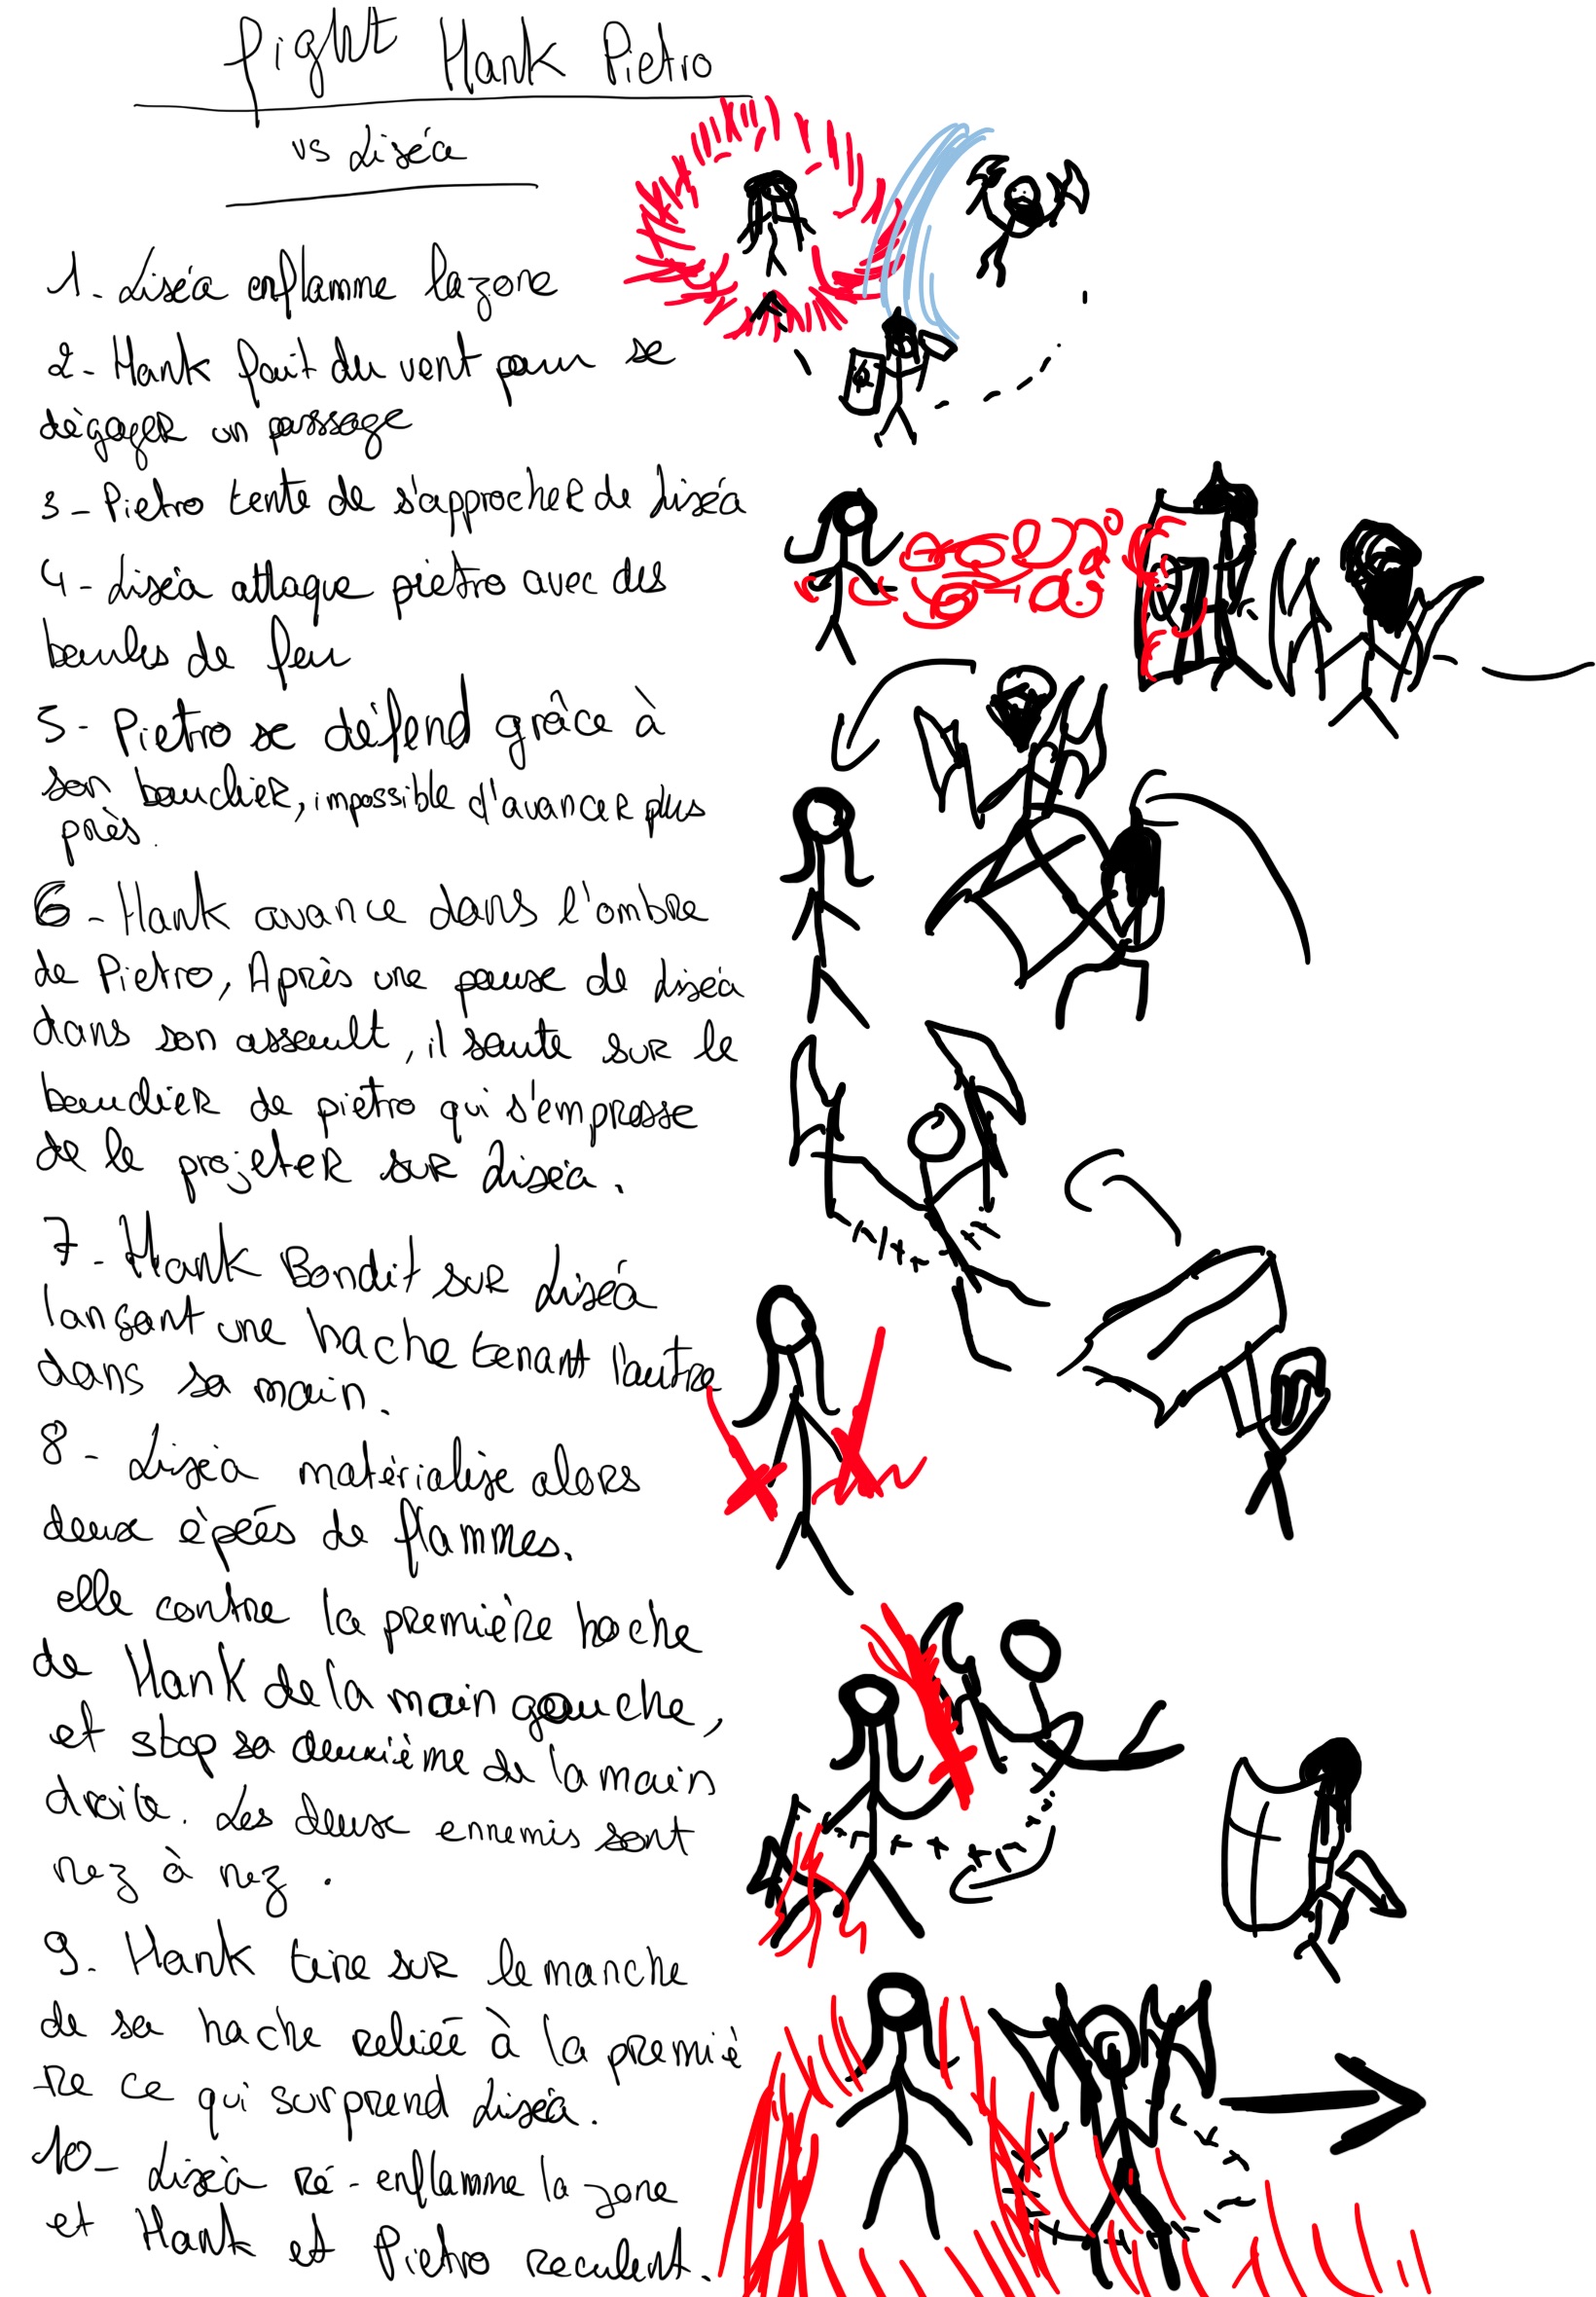 fight Hank Pietro
vs Liséa
1- Liséa enflamme la zone
2- Hank fait du vent pour se
dégager un passage
3- Pietro tente de s'approcher de Liséa
4- Liséa attaque pietro avec des
boules de feu
5- Pietro se défend grâce à
son bouclier, impossible d'avancer plus
près.
6- Hank avance dans l'ombre
de Pietro, Après une pause de Liséa
dans son assault, il saute sur le
bouclier de pietro qui s'empresse
de le projeter sur Liséa.
7- Hank Bondit sur Liséa
lançant une hache tenant l'autre
dans sa main.
8- Liséa matérialise alors
deux épées de flammes.
elle contre la première hache
de Hank de la main gauche,
et stop sa deuxième de la main
droite. Les deux ennemis sont
nez à nez.
9- Hank tire sur le manche
de sa hache reliée à la premiè
re ce qui surprend Liséa.
10- Liséa ré-enflamme la zone
et Hank et Pietro reculent.